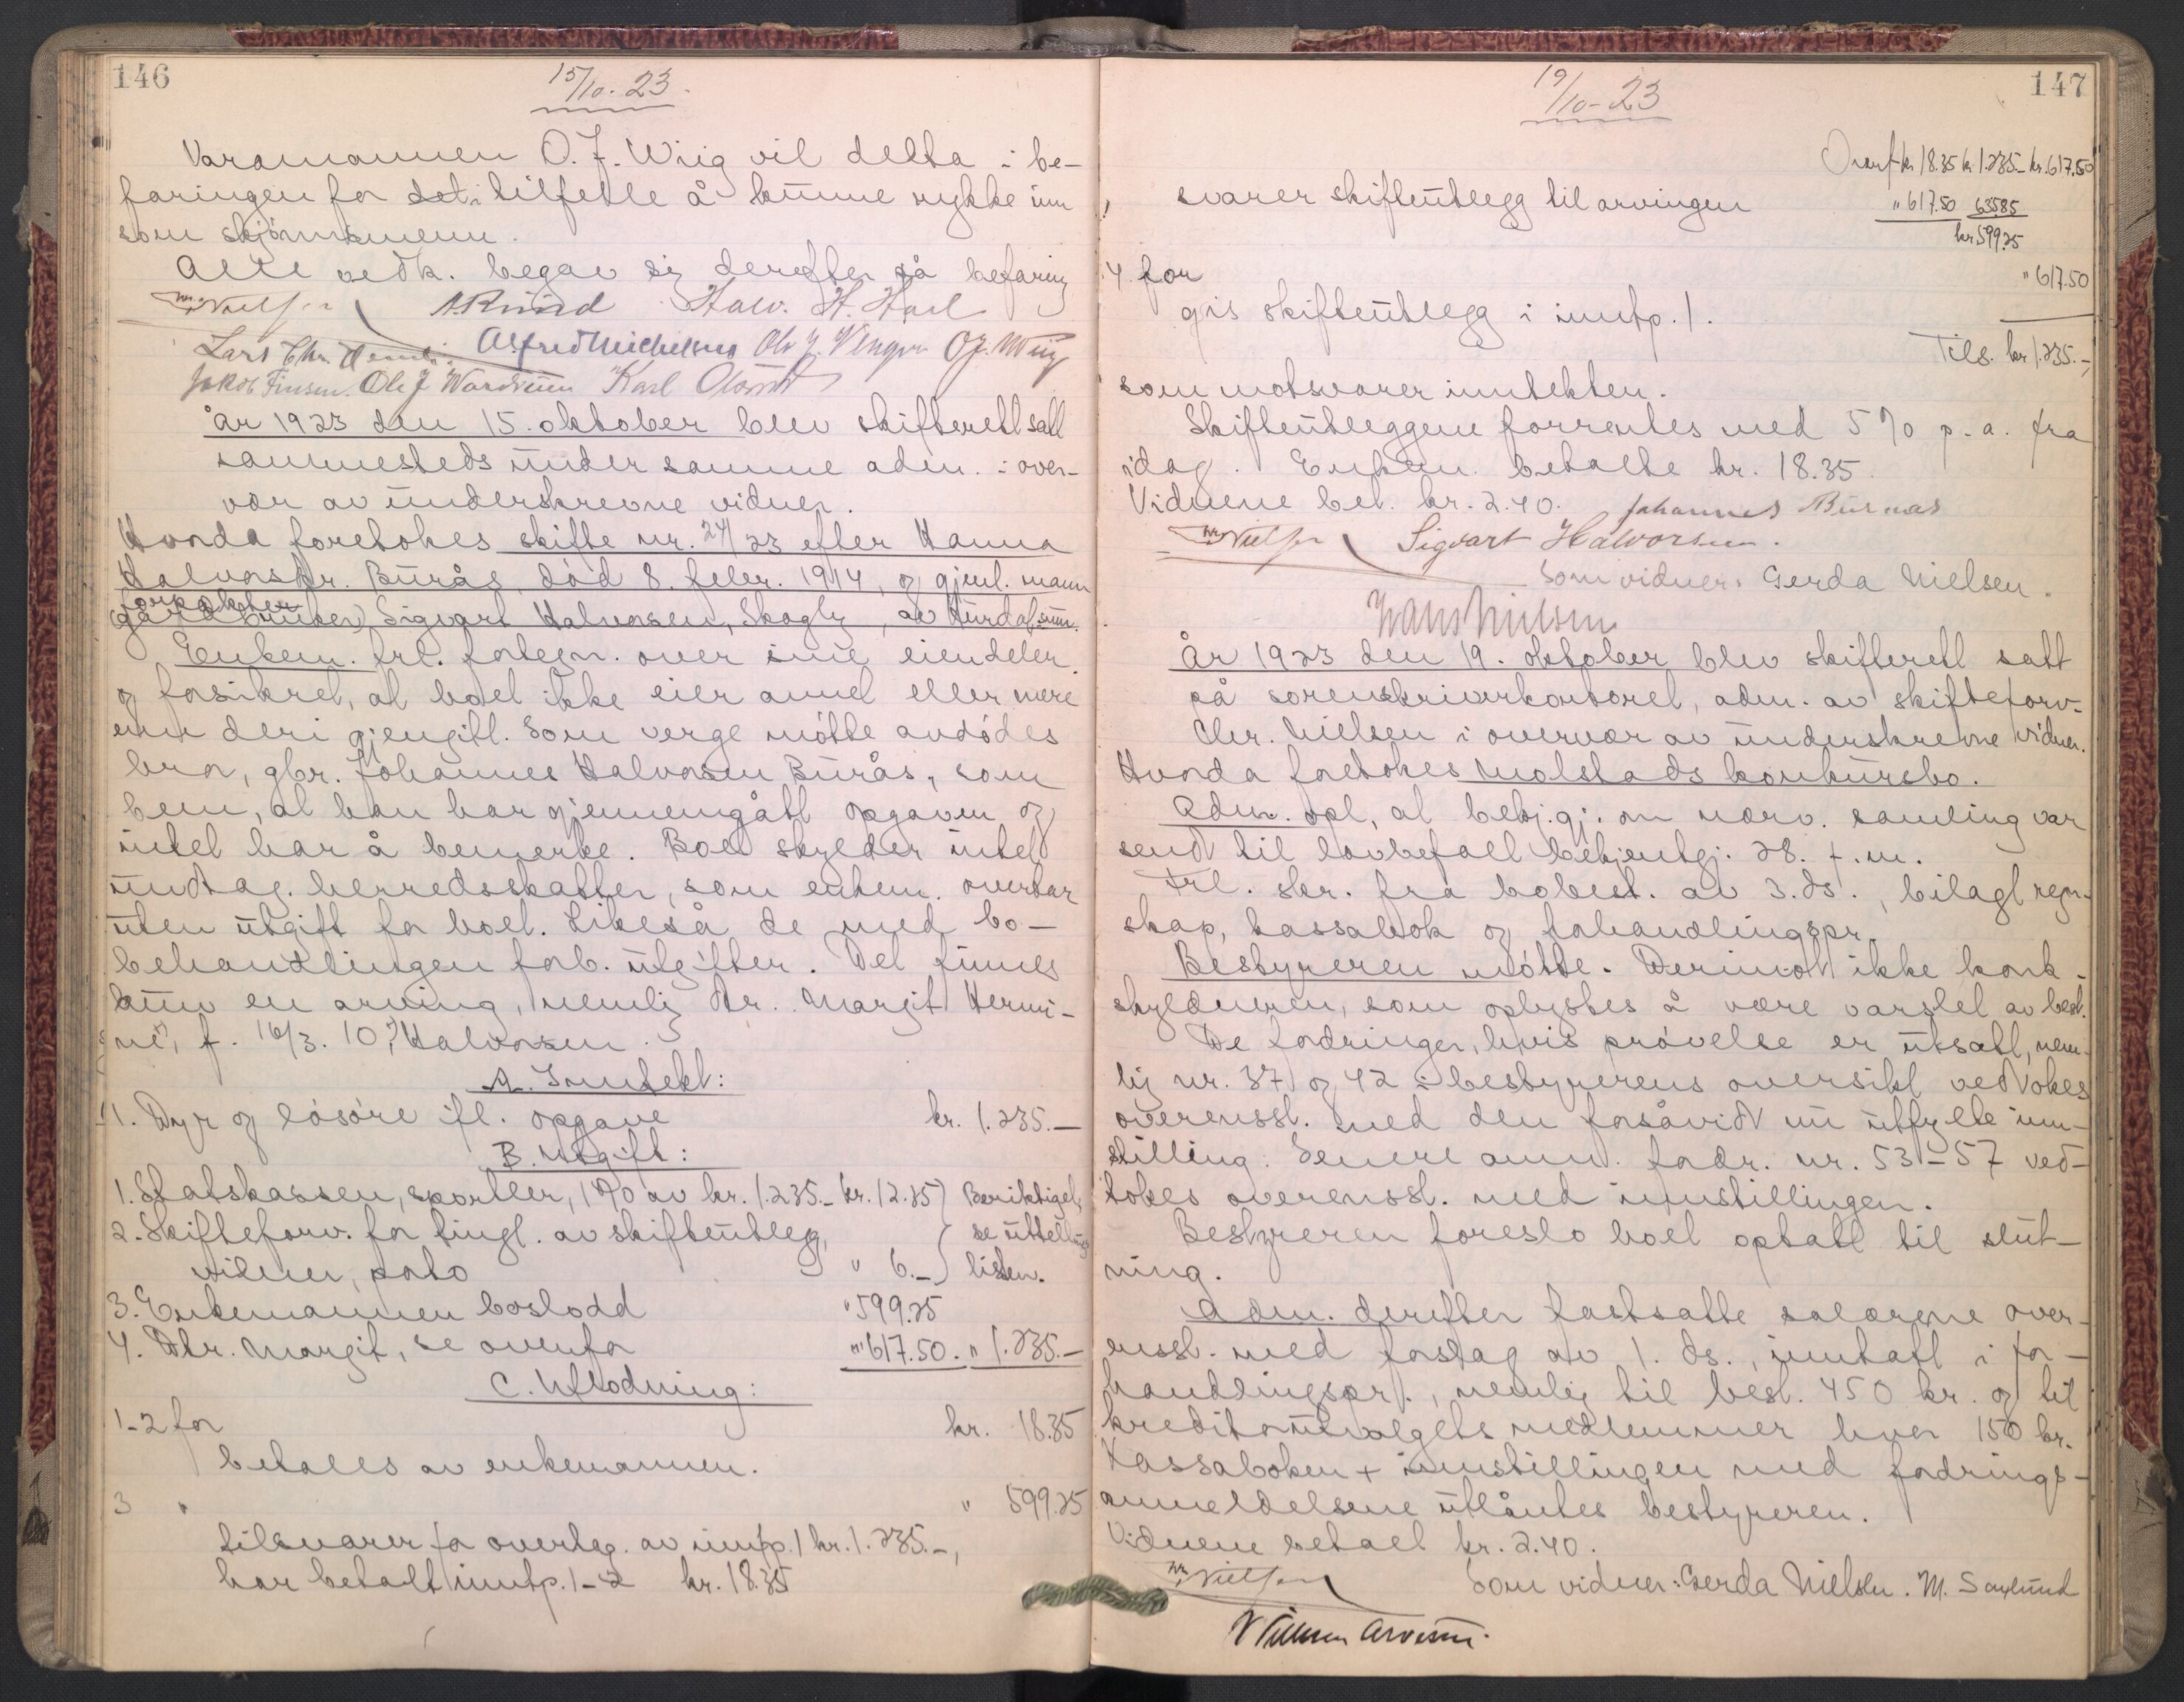 146
15/10. 23.
Varamannen O. J. Wiig vil delta i be-
faringen for det tilfelle å kunne rykke inn
som skjønnsmenn.
Alle vedk. begav sig derefter på befaring
Chr. Nielsen A. Ruud Halv. H. Hasl
Lars Chr. Alfred Michelsen Ole J. O. J. Wiig
Jakob Finsen. Ole J. Karl
År 1923 den 15. oktober blev skifterett satt
sammesteds under samme adm. i over-
vær av underskrevne vidner.
Hvorda foretokes skifte nr. 24/23 efter Hanna
Halvorsdtr. Burås, død 8. febr. 1914, og gjenl. mann
forpakter
(gårdbruker) Sigvart Halvorsen, Skogly, av Hurdal smm.
Enkem. frl. fortegn. over sine eiendeler
og forsikret, at boet ikke eier annet eller mere
enn deri gjengitt. Som verge møtte avdødes
bror, gbr. Johannes Halvorsen Burås, som
bem, at han har gjennemgått opgaven og
intet har å bemerke. Boet skylder intet
undtag. herredsskatter, som enkem. overtar
uten utgift for boet. Likeså de med bo-
behandlingen forb. utgifter. Det finnes
kun en arving, nemlig dtr. Margit Hermi-
ne, f. 16/3. 10, Halvorsen.
A. Inntekt:
1. Dyr og løsøre ifl. opgave kr. 1.235.—
B. Utgift:
1. Statskassen, sportler, 1% av kr. 1.235.- kr. 12.35) Beriktiget,
2. Skifteforv. for tingl. av skifteutlegg, se uttellings
vidner, porto " 6.—) listen.
3. Enkemannen boslodd " 599.25
4. Dtr. Margit, se ovenfor " 617.50. " 1.235.—
C. Utlodning:
1-2 for kr. 18.35
betales av enkemannen.
3 " " 599.25
tilsvarer for overtag. av inntp. 1 kr. 1.235.-,
har betalt inntp. 1-2 kr. 18.35
147
19/10-23
Overf kr 18.35 kr 1.235.- kr. 617.50
svarer skifteutlegg til arvingen " 617.50 635.85
kr 599.25
4 for " 617.50
gis skifteutlegg i inntp. 1.
Tils. kr 1.235.-,
som motsvarer inntekten.
Skifteutleggene forrentes med 5% p. a. fra
idag. Enkem. betalte kr. 18.35.
Vidnene bet. kr. 2.40. Johannes Buraas
Chr. Nielsen Sigvart Halvorsen.
Som vidner: Gerda Nielsen.
Hans Nielsen
År 1923 den 19. oktober blev skifterett satt
på sorenskriverkontoret, adm. av skifteforv.
Chr. Nielsen i overvær av underskrevne vidner.
Hvorda foretokes Molstads konkursbo.
Adm. opl, at bekj.gj. om nærv. samling var
sendt til lovbefalt bekjentgj. 28. f. m.
Frl. skr. fra bobest. av 3. ds., bilagt regn-
skap, kassabok og forhandlingspr.
Bestyreren møtte. Derimot ikke konk.
skyldneren, som oplystes å være varslet av best.
De fordringer, hvis prøvelse er utsatt, nem-
lig nr. 37 og 42 i bestyrerens oversikt vedtokes
overensst. med den forsåvidt nu utfylte inn-
stilling. Senere anm. fordr. nr. 53-57 ved-
tokes overensst. med innstillingen.
Bestyreren foreslo boet optatt til slut-
ning.
Adm. derefter fastsatte salærene over-
ensst. med forslag av 1. ds., inntatt i for-
handlingspr., nemlig til best. 450 kr. og til
kreditorutvalgets medlemmer hver 150 kr.
Kassaboken + innstillingen med fordrings-
anmeldelsene utlåntes bestyreren.
Vidnene betalt kr. 2.40.
Chr. Nielsen Som vidner: Gerda Nielsen. M. Saxlund